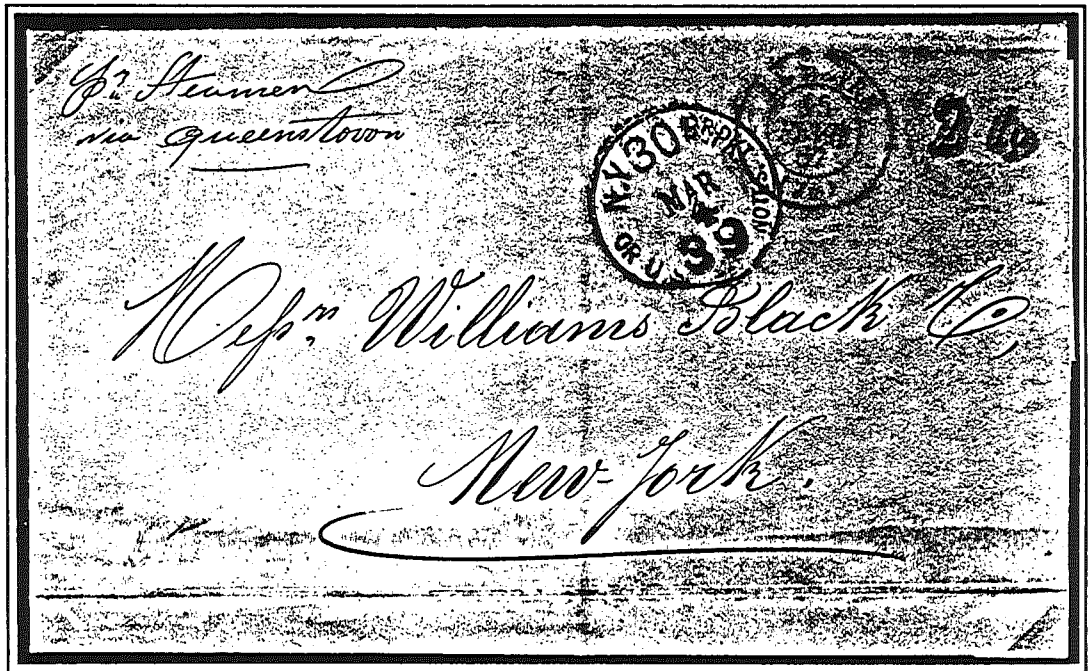 Pr Steamer
via Queenstown
N.Y. 30 BR. PKT.
MAR
4
39
OR U.S. NOTES
Messrs. Williams Black & Co,
New-York.